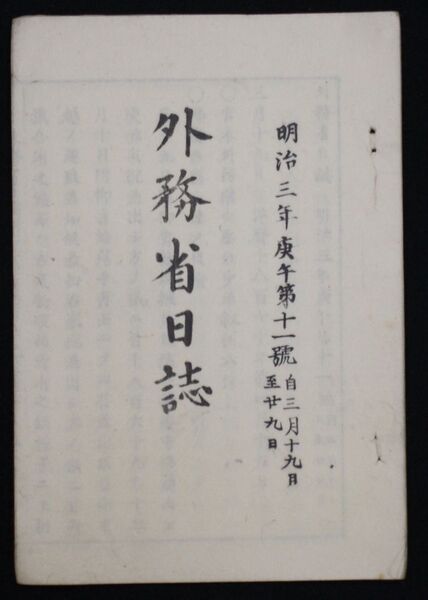 明治三年庚午第十一號
自三月十九日
至廿九日
外務省日誌